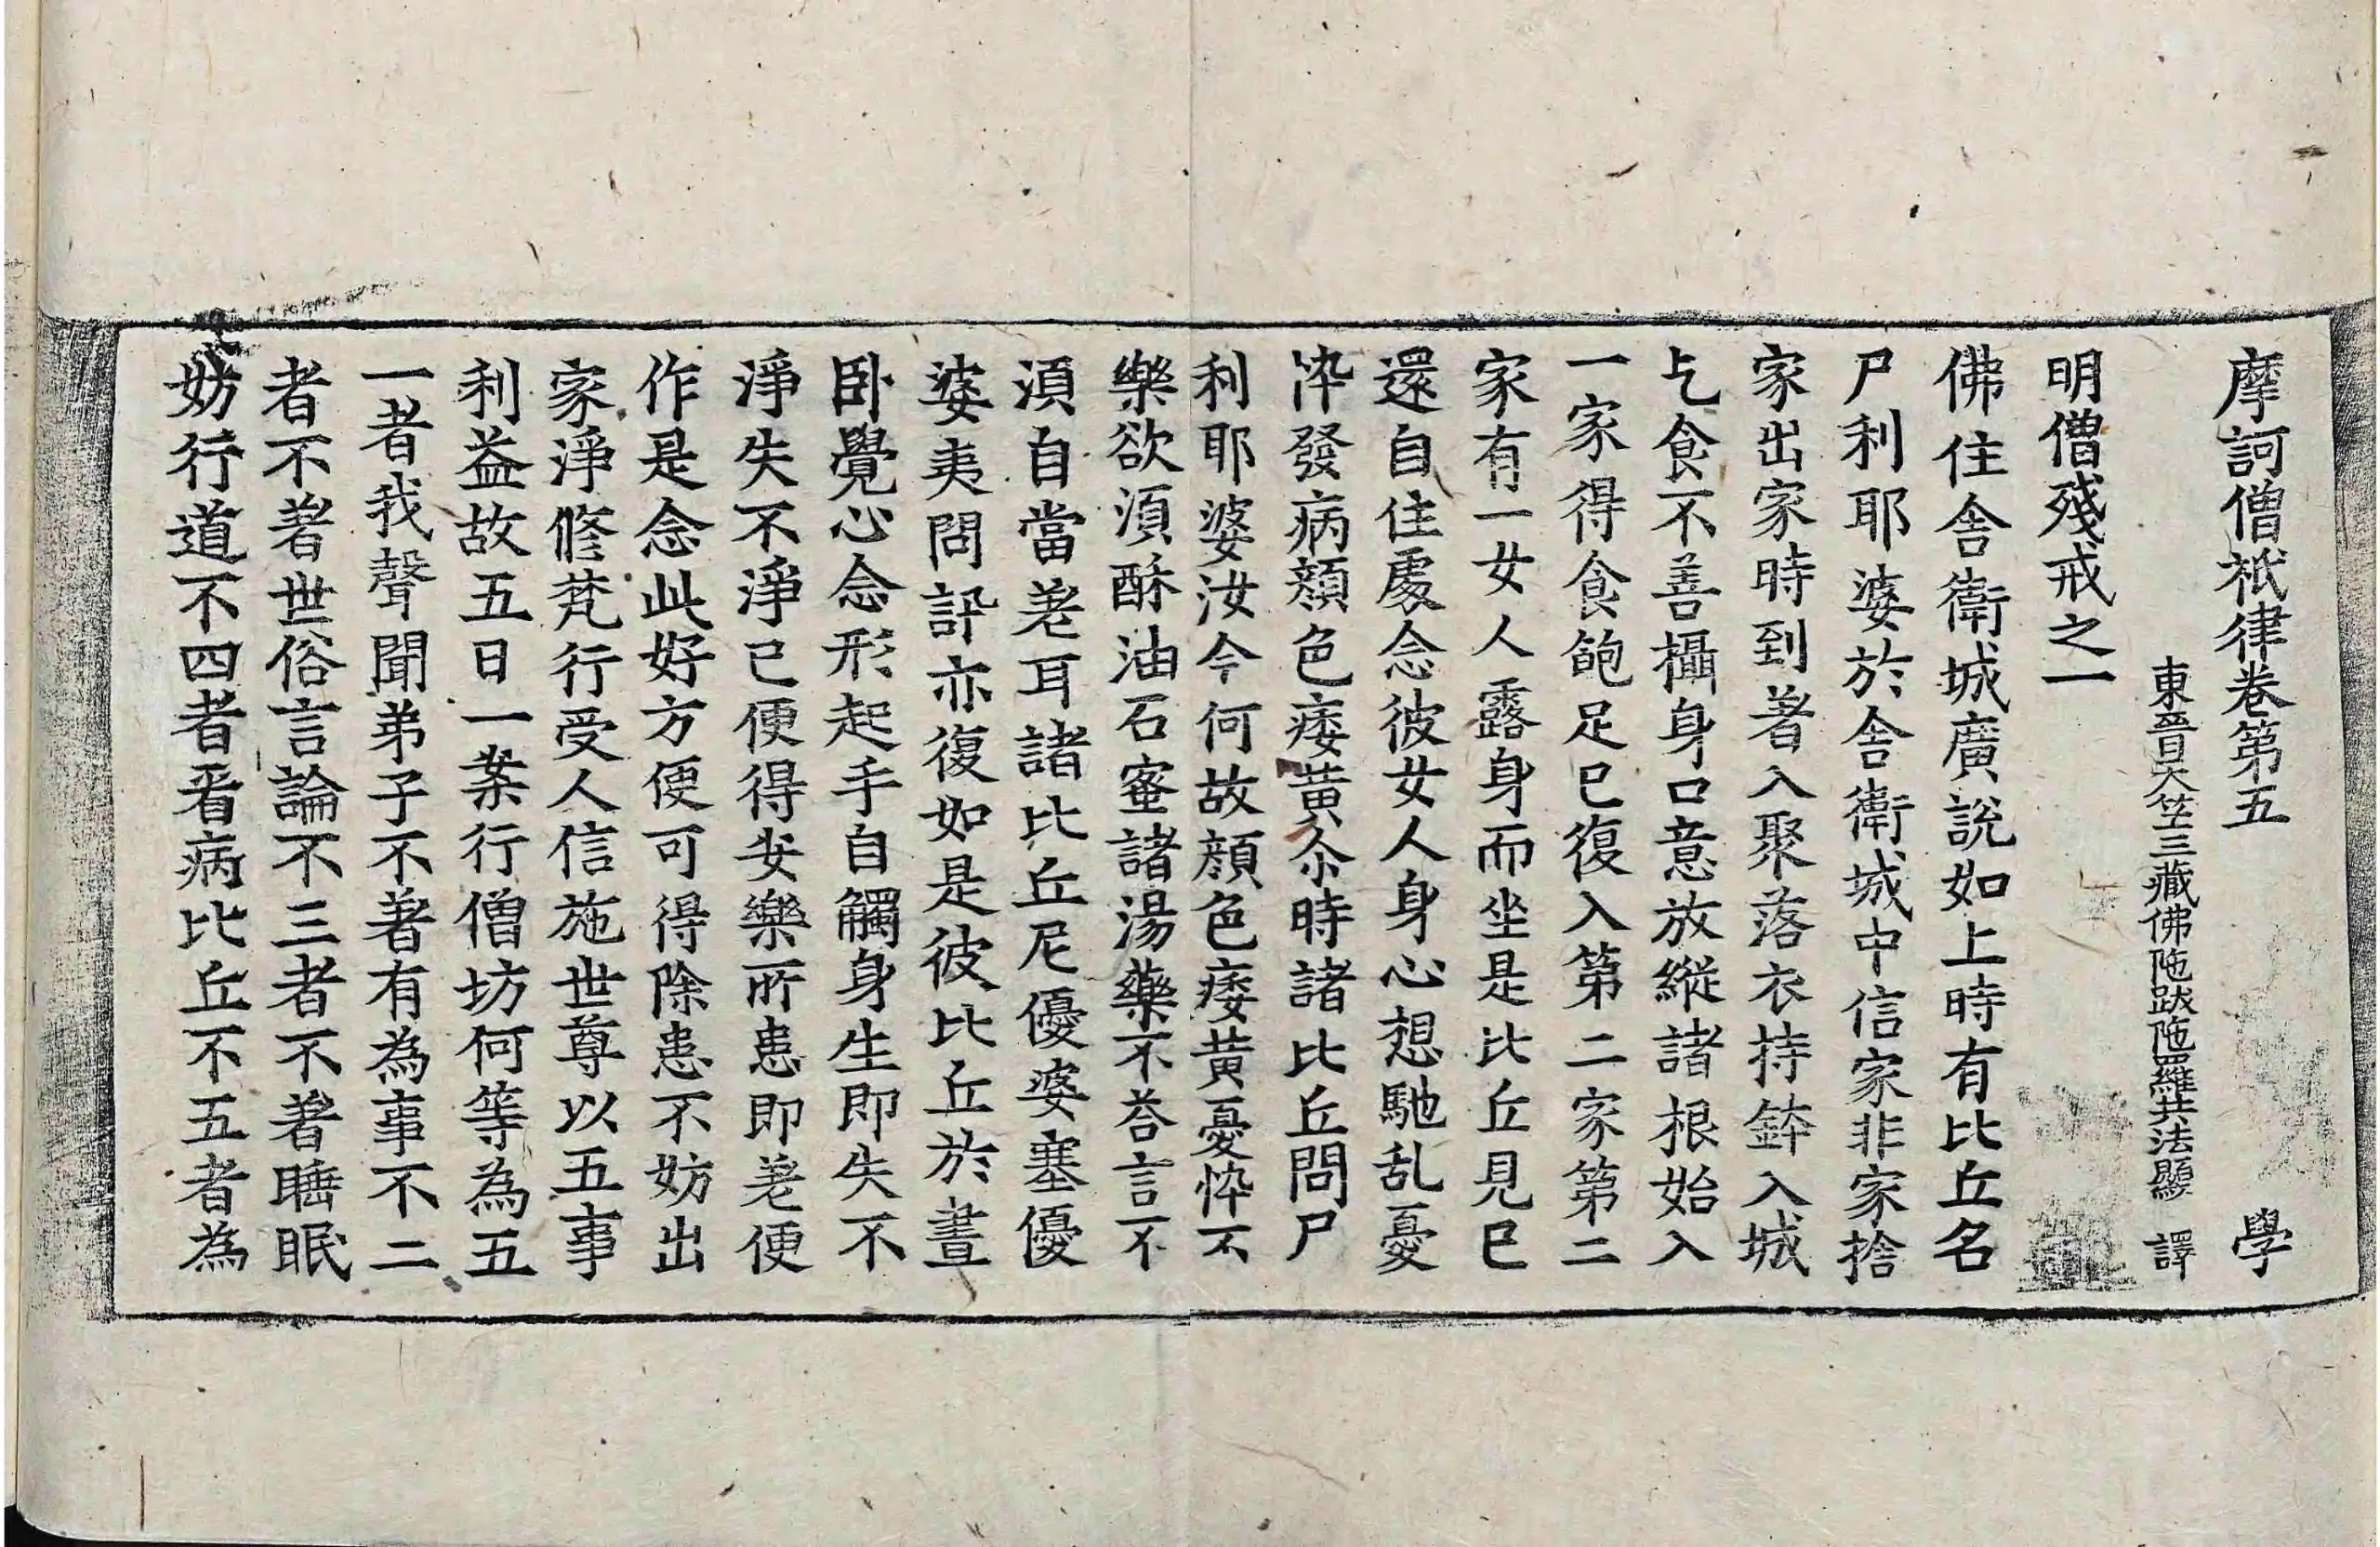 摩訶僧祇律卷第五　學
東晉天竺三藏佛陁跋陁羅共法顯　譯
明僧殘戒之一
佛住舍衛城廣說如上時有比丘名
尸利耶婆於舍衛城中信家非家捨
家出家時到著入聚落衣持鉢入城
乞食不善攝身口意放縱諸根始入
一家得食飽足已復入第二家第二
家有一女人露身而坐是比丘見已
還自住處念彼女人身心想馳乱憂
悴發病顏色痿黃尒時諸比丘問尸
利耶婆汝今何故顏色痿黃憂悴不
樂欲須酥油石蜜諸湯藥不荅言不
須自當差耳諸比丘尼優婆塞優
婆夷問訊亦復如是彼比丘於晝
卧覺心念形起手自觸身生即失不
淨失不淨已便得安樂所患即差便
作是念此好方便可得除患不妨出
家淨修梵行受人信施世尊以五事
利益故五日一案行僧坊何等為五
一者我聲聞弟子不著有為事不二
者不著世俗言論不三者不著睡眠
妨行道不四者看病比丘不五者為